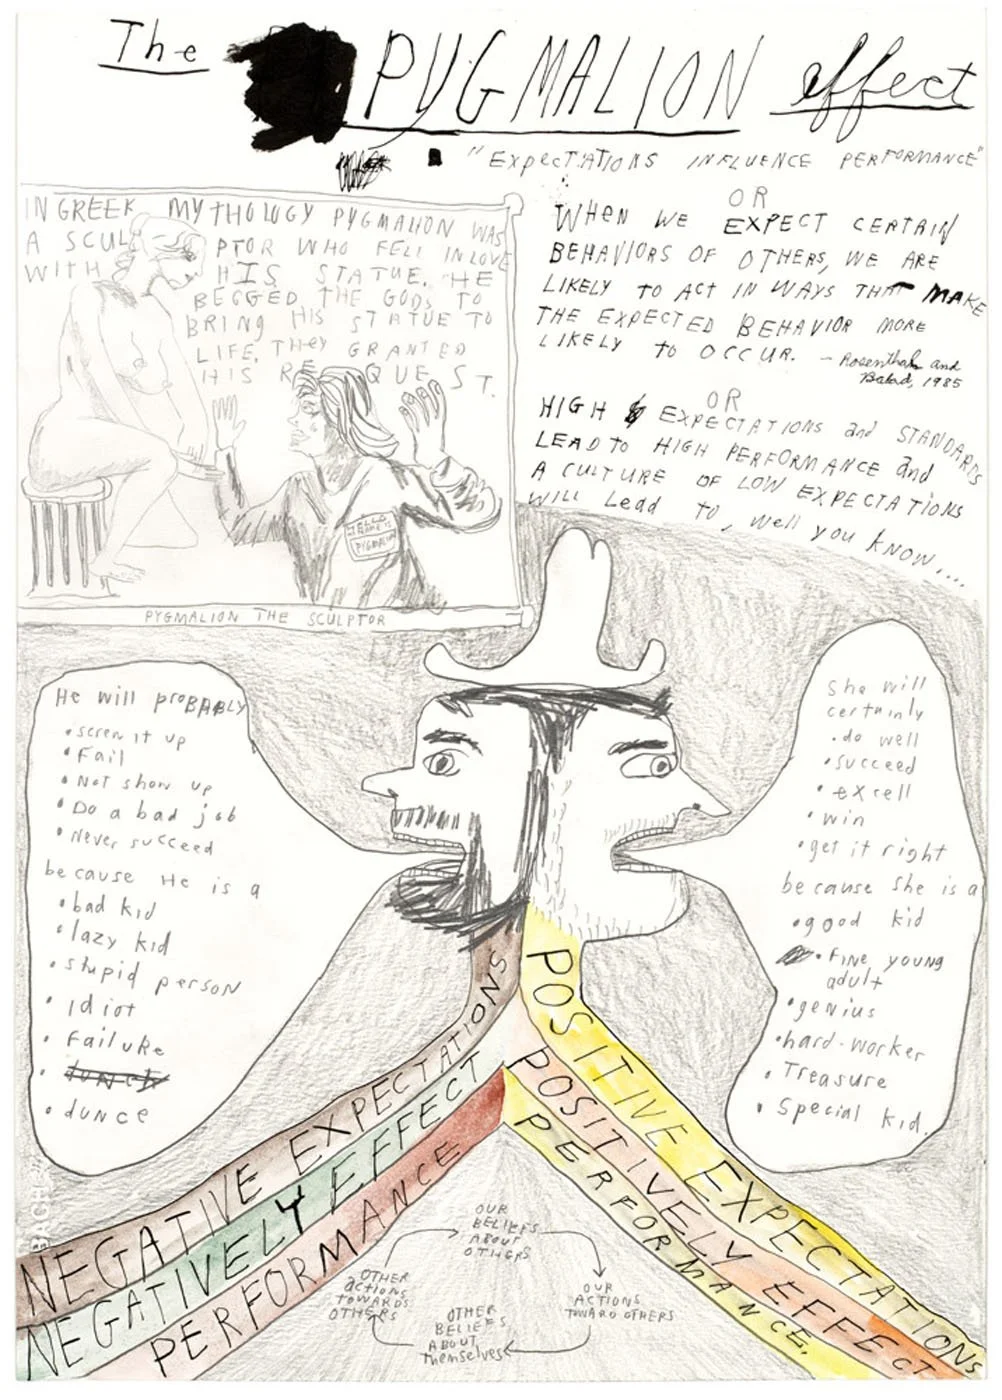 The PYGMALION effect
"EXPECTATIONS INFLUENCE PERFORMANCE"
IN GREEK MYTHOLOGY PYGMALION WAS
A SCULPTOR WHO FELL IN LOVE
WITH HIS STATUE. HE
BEGGED THE GODS TO
BRING HIS STATUE TO
LIFE. THEY GRANTED
HIS REQUEST.
HELLO
NAME IS
PYGMALION
PYGMALION THE SCULPTOR
OR
WHEN WE EXPECT CERTAIN
BEHAVIORS OF OTHERS, WE ARE
LIKELY TO ACT IN WAYS THAT MAKE
THE EXPECTED BEHAVIOR MORE
LIKELY TO OCCUR. - Rosenthal and
Babad, 1985
OR
HIGH EXPECTATIONS and STANDARDS
LEAD TO HIGH PERFORMANCE and
A CULTURE OF LOW EXPECTATIONS
WILL Lead to, well you know....
He will proBABLY
• screw it up
• Fail
• Not show up
• Do a bad job
• Never succeed
because He is a
• bad kid
• lazy kid
• stupid person
• Idiot
• Failure
• dunce
She will
certainly
• do well
• succeed
• excell
• win
• get it right
because she is a
• good kid
• Fine young
adult
• genius
• hard-worker
• Treasure
• Special kid.
NEGATIVE EXPECTATIONS
NEGATIVELY EFFECT
PERFORMANCE
POSITIVE EXPECTATIONS
POSITIVELY EFFECT
PERFORMANCE.
OUR
BELIEFS
ABOUT
OTHERS
OUR
ACTIONS
TOWARD OTHERS
OTHER
BELIEFS
ABOUT
themselves
OTHER
actions
TOWARDS
OTHERS